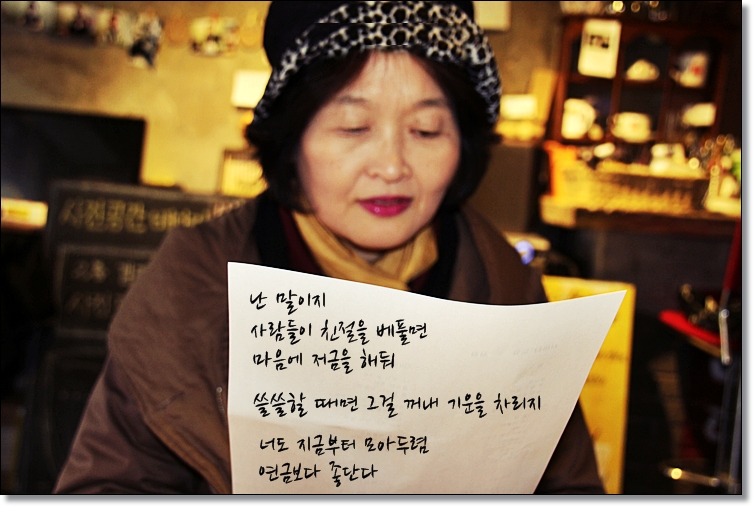 난 말이지
사람들이 친절을 베풀면
마음에 저금을 해둬
쓸쓸할 때면 그걸 꺼내 기운을 차리지
너도 지금부터 모아두렴
연금보다 좋단다